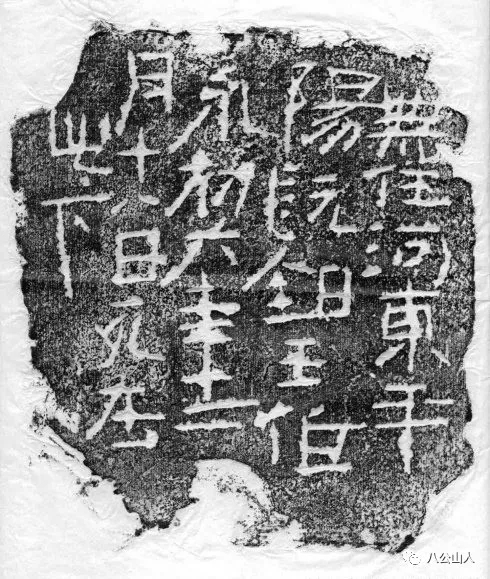 無任河東平
陽髡鉗王伯
永初六年二
月十八日死在
此下
八公山人